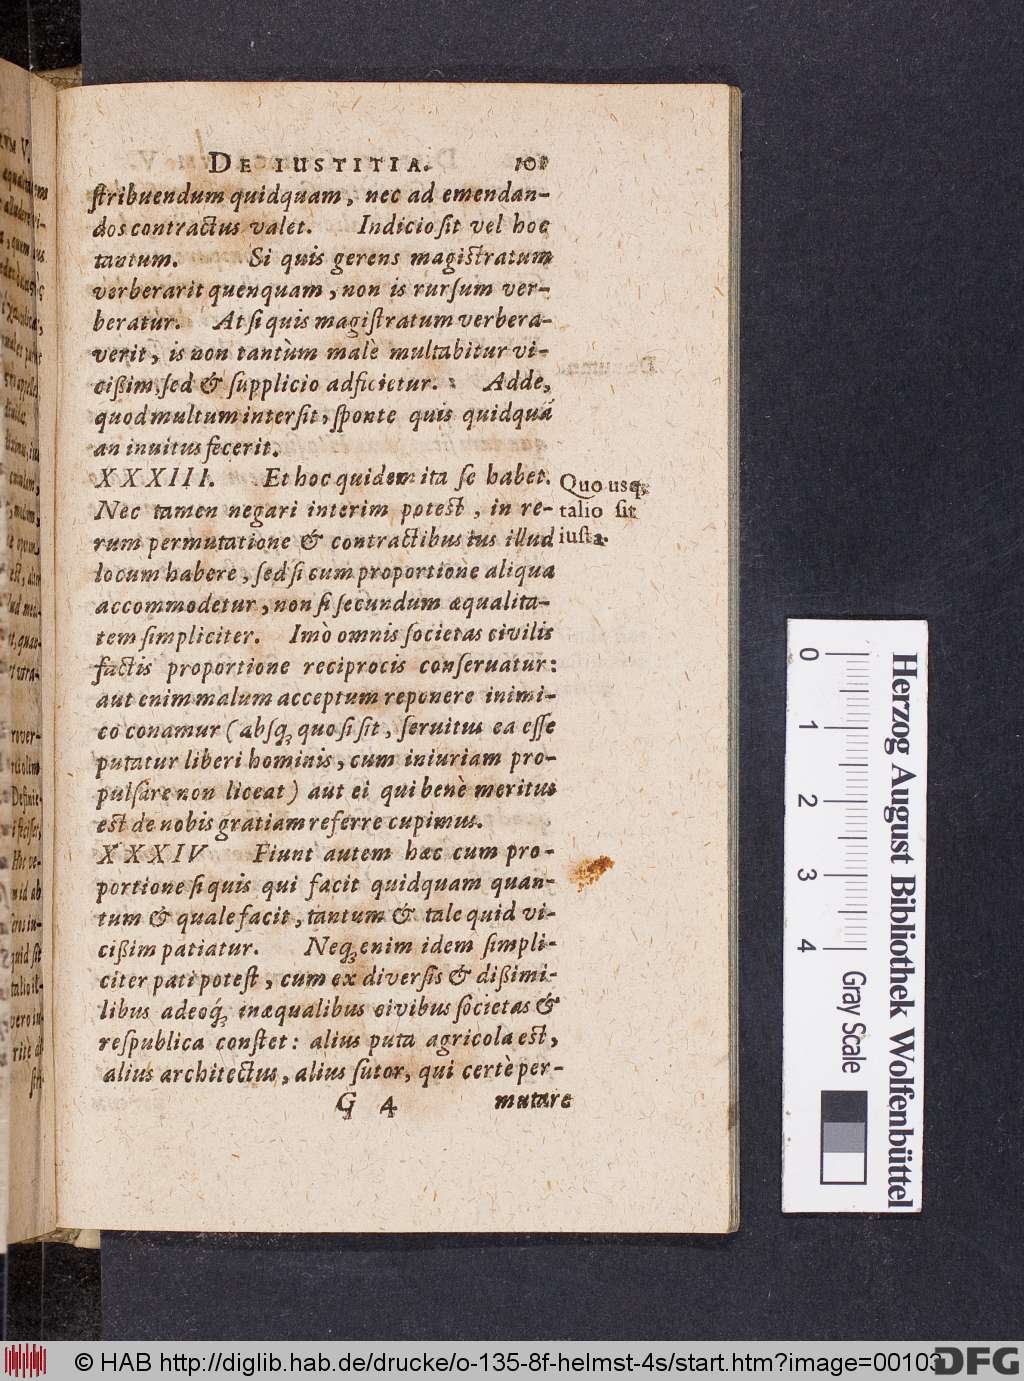 DE IUSTITIA. 101
ſtribuendum quidquam, nec ad emendan-
dos contractus valet. Indicio ſit vel hoc
tantum. Si quis gerens magiſtratum
verberarit quenquam, non is rurſum ver-
beratur. At ſi quis magiſtratum verbera-
verit, is non tantùm malè multabitur vi-
cißim, ſed & ſupplicio adficietur. Adde,
quod multum interſit, ſponte quis quidquã
an inuitus fecerit.
XXXIII. Et hoc quidem ita ſe habet.
Nec tamen negari interim poteſt, in re-
rum permutatione & contractibus ius illud
locum habere, ſed ſi cum proportione aliqua
accommodetur, non ſi ſecundum æqualita-
tem ſimpliciter. Imò omnis ſocietas civilis
factis proportione reciprocis conſeruatur:
aut enim malum acceptum reponere inimi-
co conamur (abſq; quo ſi ſit, ſeruitus ea eſſe
putatur liberi hominis, cum iniuriam pro-
pulſare non liceat) aut ei qui benè meritus
eſt de nobis gratiam referre cupimus.
XXXIV Fiunt autem hæc cum pro-
portione ſi quis qui facit quidquam quan-
tum & quale facit, tantum & tale quid vi-
cißim patiatur. Neq; enim idem ſimpli-
citer pati poteſt, cum ex diverſis & dißimi-
libus adeoq́; inæqualibus civibus ſocietas &
reſpublica conſtet: alius puta agricola eſt,
alius architectus, alius ſutor, qui certè per-
G 4 mutare
Quo usq;
talio ſit
iuſta.
0 1 2 3 4
Gray Scale
Herzog August Bibliothek Wolfenbüttel
© HAB http://diglib.hab.de/drucke/o-135-8f-helmst-4s/start.htm?image=00103
DFG